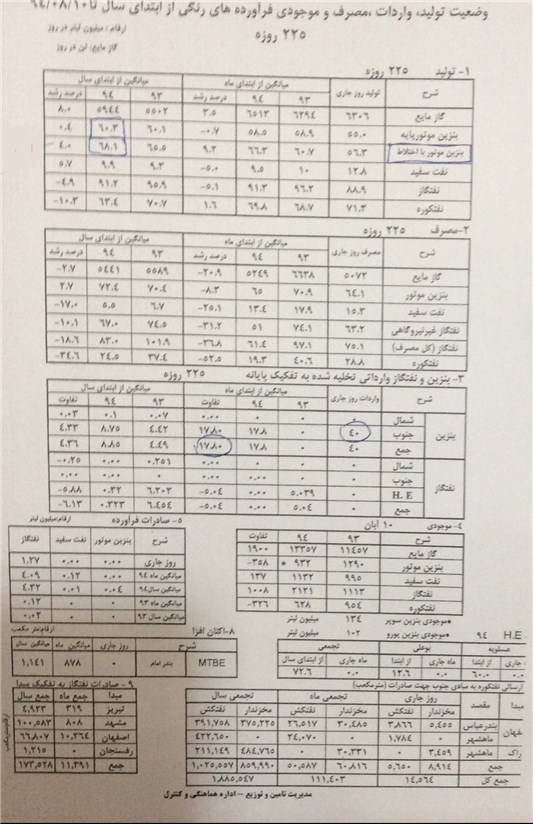 وضعیت تولید، واردات ،مصرف و موجودی فرآورده های رنگی از ابتدای سال تا ۹۴/۰۸/۱۰
۲۲۵ روزه
ارقام: میلیون لیتر در روز
گاز مایع: تن در روز
۱- تولید ۲۲۵ روزه
شرح تولید روز جاری میانگین از ابتدای ماه میانگین از ابتدای سال
۹۳ ۹۴ درصد رشد ۹۳ ۹۴ درصد رشد
گاز مایع ۶۳۰۶ ۶۲۹۴ ۶۵۱۳ ۳.۵ ۵۵۰۲ ۵۹۴۴ ۸.۰
بنزین موتورپایه ۵۵.۰ ۵۸.۹ ۵۸.۵ -۰.۷ ۶۰.۱ ۶۰.۳ ۰.۴
بنزین موتور با اختلاط ۵۶.۳ ۶۰.۷ ۶۶.۳ ۹.۳ ۶۵.۵ ۶۸.۱ ۴.۰
نفت سفید ۱۲.۸ ۱۰ ۹.۵ -۵.۰ ۹.۳ ۹.۹ ۵.۷
نفتگاز ۸۸.۹ ۹۶.۲ ۹۱.۳ -۵.۱ ۹۵.۹ ۹۱.۲ -۴.۹
نفتکوره ۷۱.۳ ۶۸.۷ ۶۹.۸ ۱.۶ ۷۰.۷ ۶۳.۴ -۱۰.۳
۲-مصرف ۲۲۵ روزه
شرح مصرف روز جاری میانگین از ابتدای ماه میانگین از ابتدای سال
۹۳ ۹۴ درصد رشد ۹۳ ۹۴ درصد رشد
گاز مایع ۵۰۷۲ ۶۶۳۸ ۵۲۴۹ -۲۰.۹ ۵۵۸۹ ۵۴۴۱ -۲.۷
بنزین موتور ۶۴.۱ ۷۰.۹ ۶۵ -۸.۳ ۷۰.۴ ۷۲.۴ ۲.۷
نفت سفید ۱۵.۳ ۱۷.۹ ۱۳.۴ -۲۵.۱ ۶.۷ ۵.۵ -۱۷.۰
نفتگاز غیرنیروگاهی ۶۳.۲ ۷۴.۱ ۵۱ -۳۱.۲ ۷۴.۵ ۶۷.۰ -۱۰.۱
نفتگاز (کل مصرف) ۷۵.۱ ۹۷.۱ ۶۱.۴ -۳۶.۸ ۱۰۱.۹ ۸۳.۰ -۱۸.۶
نفتکوره ۲۸.۸ ۴۰.۶ ۱۹.۳ -۵۲.۵ ۳۷.۴ ۲۴.۵ -۳۴.۶
۳- بنزین و نفتگاز وارداتی تخلیه شده به تفکیک پایانه ۲۲۵ روزه
شرح واردات روز جاری میانگین از ابتدای ماه میانگین از ابتدای سال
۹۳ ۹۴ تفاوت ۹۳ ۹۴ تفاوت
بنزین
شمال ۰ ۰ ۰ ۰.۰۰ ۰.۰۷ ۰.۱ ۰.۰۳
جنوب ۴۰ ۰ ۱۷.۸ ۱۷.۸۰ ۴.۴۲ ۸.۷۵ ۴.۳۳
جمع ۴۰ ۰ ۱۷.۸ ۱۷.۸۰ ۴.۴۹ ۸.۸۵ ۴.۳۶
نفتگاز
شمال ۰ ۰ ۰ ۰.۰۰ ۰.۲۵۱ ۰ -۰.۲۵
جنوب ۰ ۰ ۰ ۰.۰۰ ۰ ۰ ۰.۰۰
H. E ۰ ۵.۰۳۹ ۰ -۵.۰۴ ۶.۲۰۳ ۰.۳۲ -۵.۸۸
جمع ۰ ۵.۰۴ ۰ -۵.۰۴ ۶.۴۵۴ ۰.۳۲۳ -۶.۱۳
۴- موجودی ۱۰ آبان
شرح ۹۳ ۹۴ تفاوت
گاز مایع ۱۱۴۵۷ ۱۳۳۵۷ ۱۹۰۰
بنزین موتور ۱۲۹۰ ۹۳۲ * -۳۵۸
نفت سفید ۹۹۵ ۱۱۳۲ ۱۳۷
نفتگاز ۱۱۱۳ ۲۱۲۱ ۱۰۰۸
نفتکوره ۹۵۴ ۶۲۸ -۳۲۶
*موجودی بنزین سوپر ۱۳۴ میلیون لیتر
*موجودی بنزین یورو ۱۰۲ میلیون لیتر
۵- صادرات فرآورده ارقام:میلیون لیتر
شرح بنزین موتور نفت سفید نفتگاز
روز جاری ۰.۰۰ ۰.۰۰ ۱.۲۷
میانگین ماه ۹۴ ۰.۰۰ ۰.۱۲ ۴.۰۹
میانگین سال ۹۴ ۰.۰۴ ۰.۰۱ ۴.۳۲
میانگین ماه ۹۳ ۰ ۰ ۰.۱۲
میانگین سال ۹۳ ۰ ۰ ۰.۰۲
H.E ۹۴
بوعلی تجمعی
ماه جاری از ابتدا ماه جاری از ابتدای سال
۶۰.۰ ۰ ۱۲.۶ ۰.۰ ۷۲.۶
۸-اکتان افزا ارقام:متر مکعب
شرح روز جاری میانگین ماه میانگین سال
MTBE بندر امام ۰ ۸۷۸ ۱,۱۴۱
ارسالی نفتکوره به مبادی جنوب جهت صادرات (مترمکعب)
مبدا مقصد روز جاری تجمعی ماه تجمعی سال
مخزندار نفتکش مخزندار نفتکش مخزندار نفتکش
بندرعباس ۵,۴۵۵ ۳,۸۶۶ ۳۰,۴۸۵ ۲۶,۵۱۷ ۳۷۵,۲۳۰ ۳۹۱,۷۵۸
ماهشهر ۰ ۱,۷۸۴ ۰ ۲۴,۰۷۰ ۰ ۴۲۲,۶۵۰
ماهشهر ۳,۴۵۹ ۰ ۳۰,۳۳۱ ۰ ۴۸۴,۷۶۰ ۲۱۱,۱۴۹
جمع ۸,۹۱۴ ۵,۶۵۰ ۶۰,۸۱۶ ۵۰,۵۸۷ ۸۵۹,۹۹۰ ۱,۰۲۵,۵۵۷
جمع کل ۱۴,۵۶۴ ۱۱۱,۴۰۳ ۱,۸۸۵,۵۴۷
۹- صادرات نفتگاز به تفکیک مبدا
مبدا جمع ماه جمع سال
تبریز ۳۱۹ ۴,۹۲۳
مشهد ۸۰۸ ۱۰۰,۵۸۳
اصفهان ۱۰,۲۶۴ ۶۶,۸۰۷
رفسنجان ۰ ۱,۲۱۵
جمع ۱۱,۳۹۱ ۱۷۳,۵۲۸
ارقام:مترمکعب
مدیریت تامین و توزیع -- اداره هماهنگی و کنترل